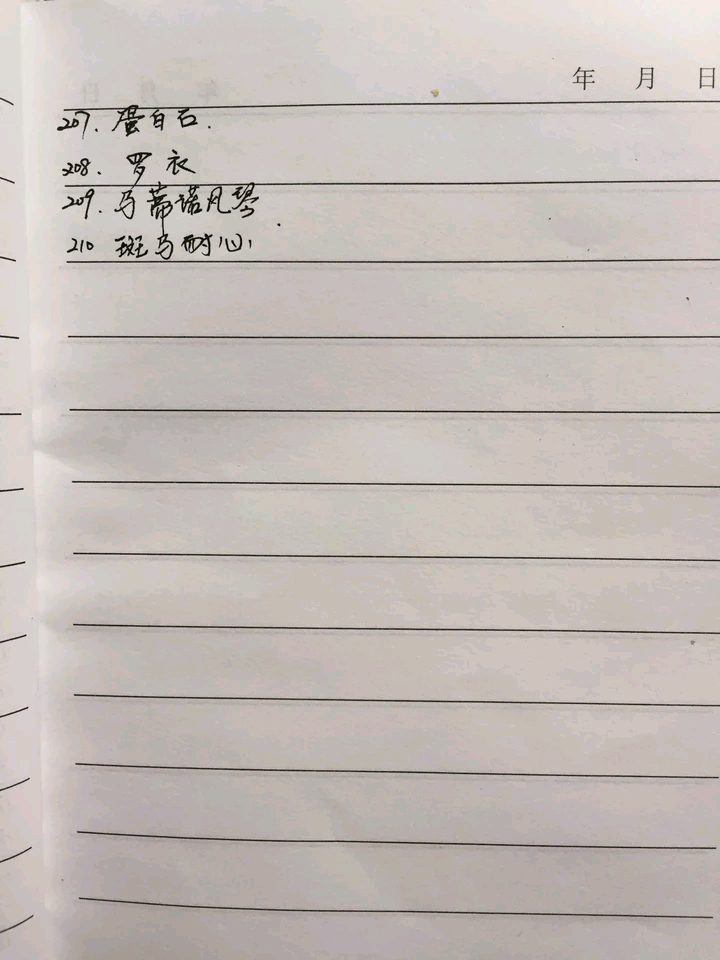 年 月 日
207. 蛋白石.
208. 罗衣
209. 马蒂诺凡琴
210 斑马耐心